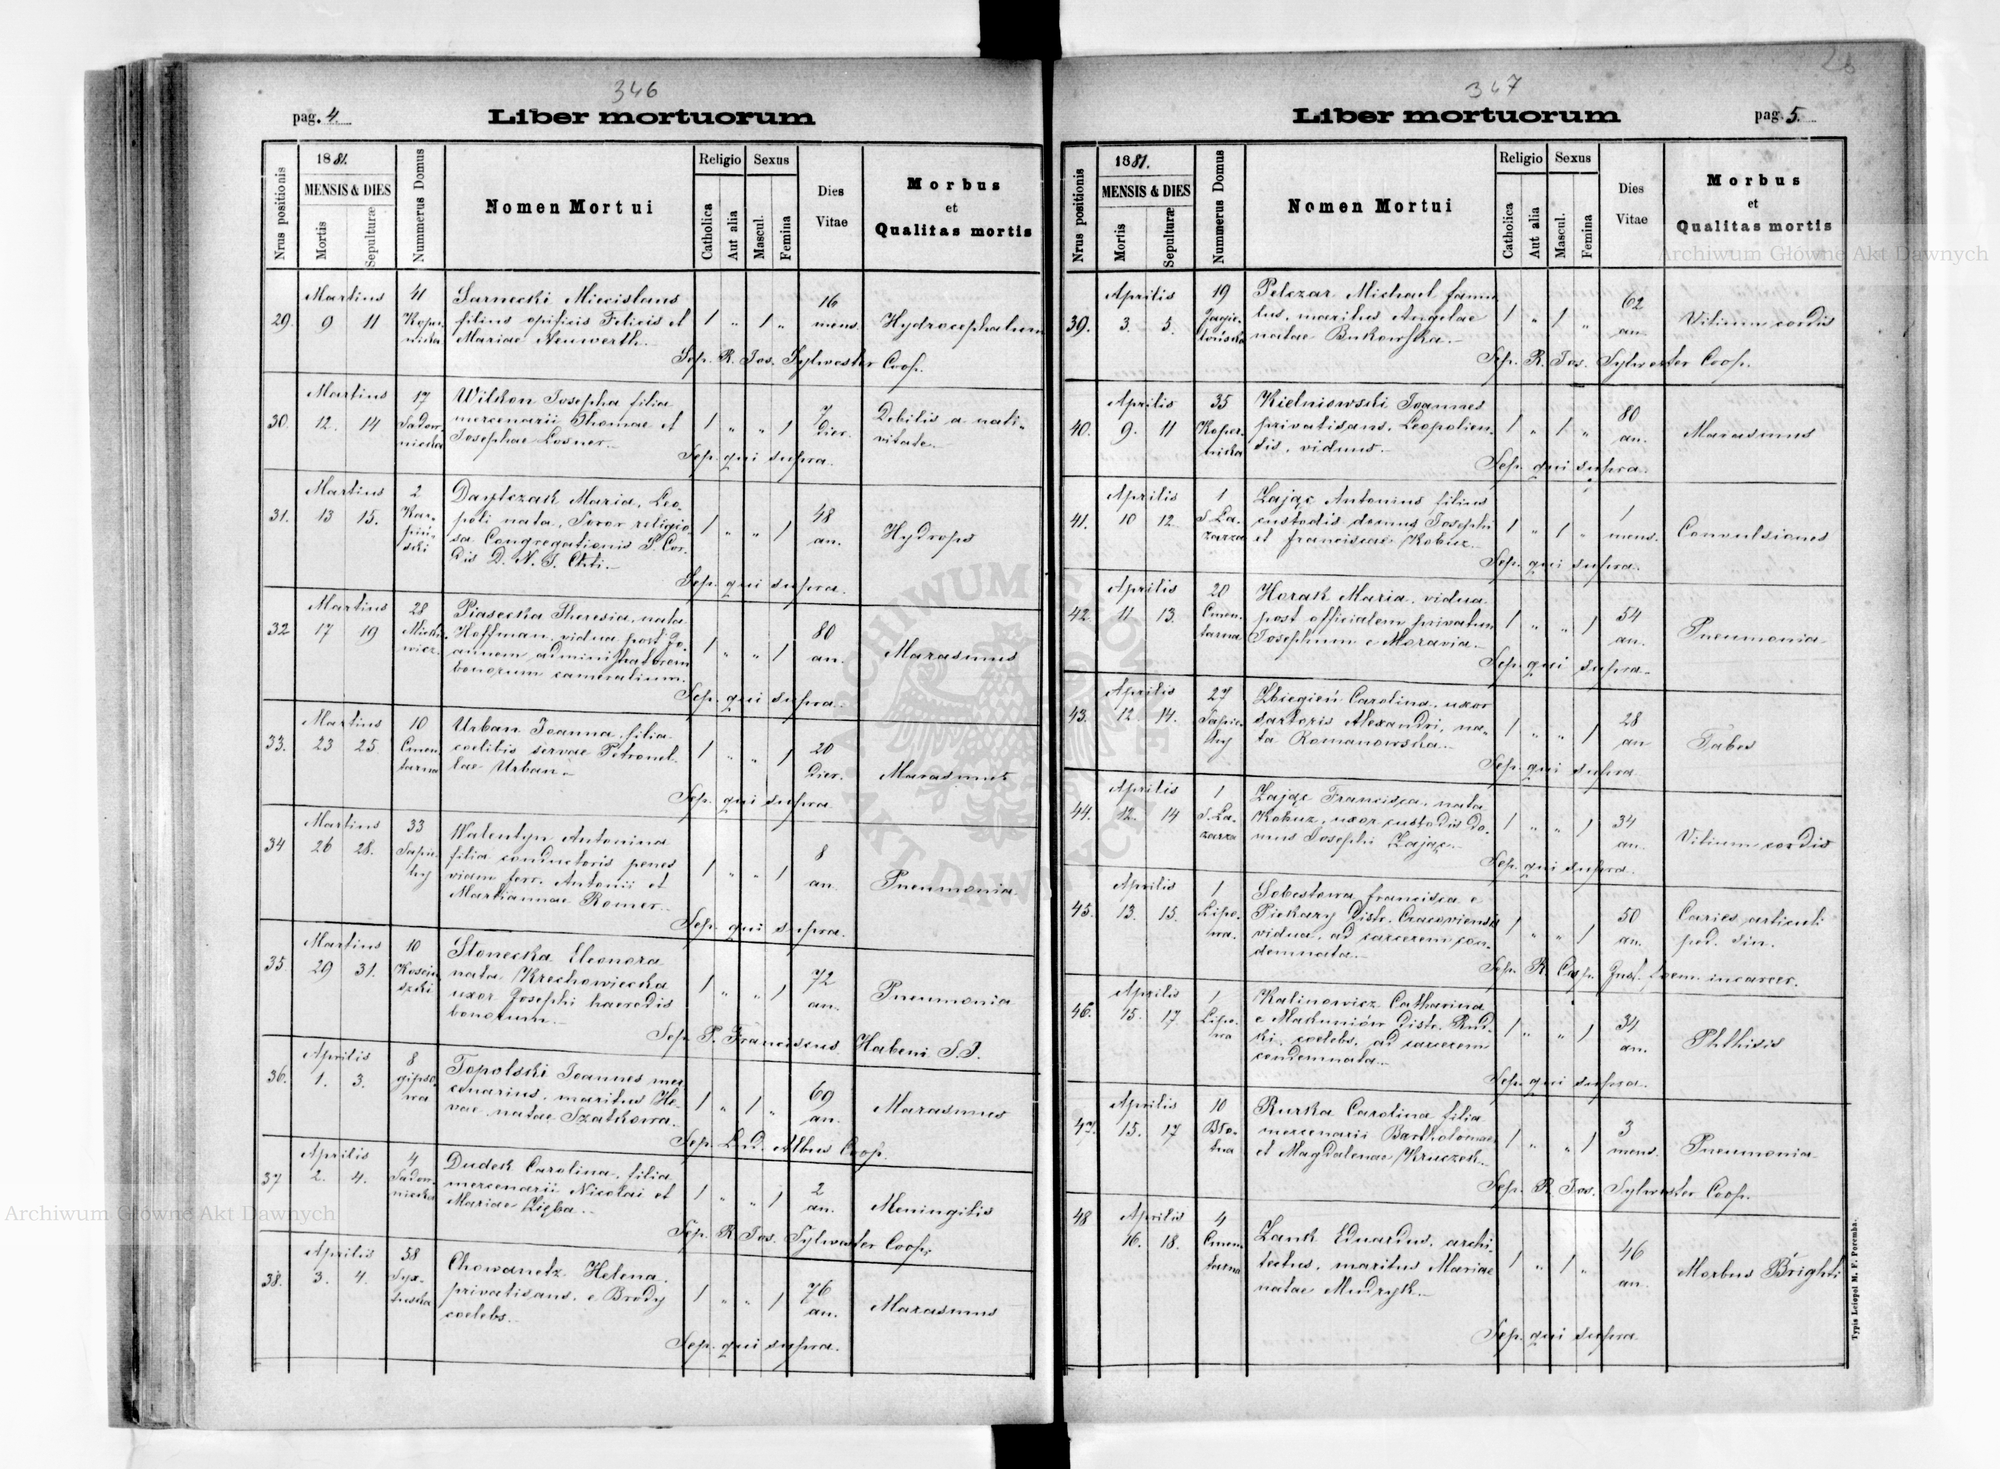 346
pag. 4. Liber mortuorum
Nrus positionis
1881.
MENSIS & DIES
Mortis
Sepulturæ
Nummerus Domus
Nomen Mortui
Religio
Catholica
Aut alia
Sexus
Mascul.
Femina
Dies
Vitae
Morbus
et
Qualitas mortis
29. Martius 9 11 41 Koper-
nicka
Sarnecki Miecislaus
filius opificis Felicis et
Mariae Neuwerth.
1 " 1 " 16
mens. Hydrocephalum
Sep. R. Jos. Sylwester Coop.
30. Martius 12. 14 17 Sadow-
nicka
Josepha filia
mercenarii Thomae et
Josephae Losner.
1 " " 1 7
dier. Debilis a nati-
vitate.
Sep. qui supra.
31. Martius 13 15. 2
Maria, Leo-
poli nata, Soror religio-
sa Congregationis S. Cor-
dis D. N. J. Chti.
1 " " 1 48
an. Hydrops
Sep. qui supra.
32 Martius 17 19 28 Micki-
wicz.
Piasecka Theresia, nata
Hoffman, vidua post Jo-
annem administratorem
bonorum cameralium.
1 " " 1 80
an. Marasmus
Sep. qui supra.
33. Martius 23 25. 10 Cmen-
tarna
Urban Joanna, filia
coelibis servae Petronel-
lae Urban
1 " " 1 20
dier. Marasmus
Sep. qui supra
34 Martius 26 28. 33 Sapie-
hy
Walentyn Antonina
filia conductoris penes
viam ferr. Antonii et
Mariannae Romer.
1 " " 1 8
an. Pneumonia.
Sep. qui supra.
35. Martius 29 31. 10
Eleonora
nata Krechowiecka
uxor Josephi haeredis
bonorum.
1 " " 1 72
an. Pneumonia
Sep. P. Franciscus Habeni S.J.
36. Aprilis 1. 3. 8 gipso-
wa
Topolski Joannes mer-
cenarius, maritus He-
vae natae Szatkowa.
1 " 1 " 69
an. Marasmus
Sep. Lud. Albus Coop.
37 Aprilis 2. 4. 4 Sadow-
nicka
Dudek Carolina, filia
mercenarii Nicolai et
Mariae Zięba.
1 " " 1 2
an. Meningitis
Sep. R. Jos. Sylwester Coop.
38. Aprilis 3. 4. 58 Syx-
tuska
Chowanetz Helena
privatisans, e Brody
coelebs.
1 " " 1 76
an. Marasmus
Sep. qui supra.
347
Liber mortuorum pag. 5.
Nrus positionis
1881.
MENSIS & DIES
Mortis
Sepulturæ
Nummerus Domus
Nomen Mortui
Religio
Catholica
Aut alia
Sexus
Mascul.
Femina
Dies
Vitae
Morbus
et
Qualitas mortis
39. Aprilis 3. 5. 19 Jagie-
lońska
Pelczar Michael famu-
lus, maritus Angelae
natae Bukowska.
1 " 1 " 62
an. Vitium cordis
Sep. R. Jos. Sylwester Coop.
40. Aprilis 9. 11 35 Koper-
nicka
Kielniowski Joannes
privatisans, Leopolien-
sis, viduus.
1 " 1 " 80
an. Marasmus
Sep. qui supra.
41. Aprilis 10 12. 1 S. Ła-
zarza
Zając Antonius filius
custodis domus Josephi
et Franciscae Kobuz.
1 " 1 " 1
mens. Convulsiones
Sep. qui supra.
42. Aprilis 11 13. 20 Cmen-
tarna
Horak Maria, vidua
post officialem privatum
Josephum e Moravia.
1 " " 1 54
an. Pneumonia
Sep. qui supra.
43. Aprilis 12 14. 27 Sapie-
hy
Zbiegień Carolina, uxor
sartoris Alexandri, na-
ta Romanowska.
1 " " 1 28
an Tabes
Sep. qui supra
44. Aprilis 12. 14 1 S. Ła-
zarza
Zając Francisca, nata
Kobuz, uxor custodis do-
mus Josephi Zając.
1 " " 1 34
an. Vitium cordis
Sep. qui supra.
45. Aprilis 13. 15. 1 Lipo-
wa.
Sobestowa Francisca e
Piekary Distr. Cracoviensis
vidua, ad carcerem con-
demnata.
1 " " 1 50
an. Caries articuli
ped. sin.
Sep. R. Cap. Inst. foem. incarcer.
46. Aprilis 15. 17 1 Lipo-
wa
Kalinowicz Catharina
e Makuniów Distr. Rud-
ki, coelebs, ad carcerem
condemnata.
1 " " 1 34
an. Phthisis
Sep. qui supra.
47. Aprilis 15. 17 10 Bło-
tna
Rurka Carolina filia
mercenarii Bartholomaei
et Magdalenae Kruczek.
1 " " 1 3
mens. Pneumonia
Sep. R. Jos. Sylwester Coop.
48 Aprilis 16. 18. 4 Cmen-
tarna
Zank Eduardus, archi-
tectus, maritus Mariae
natae Mudryk.
1 " 1 " 46
an. Morbus Brighti
Sep. qui supra
Typis Leiopol M. F. Poremba.
Archiwum Główne Akt Dawnych
Archiwum Główne Akt Dawnych
ARCHIWUM GŁÓWNE AKT DAWNYCH